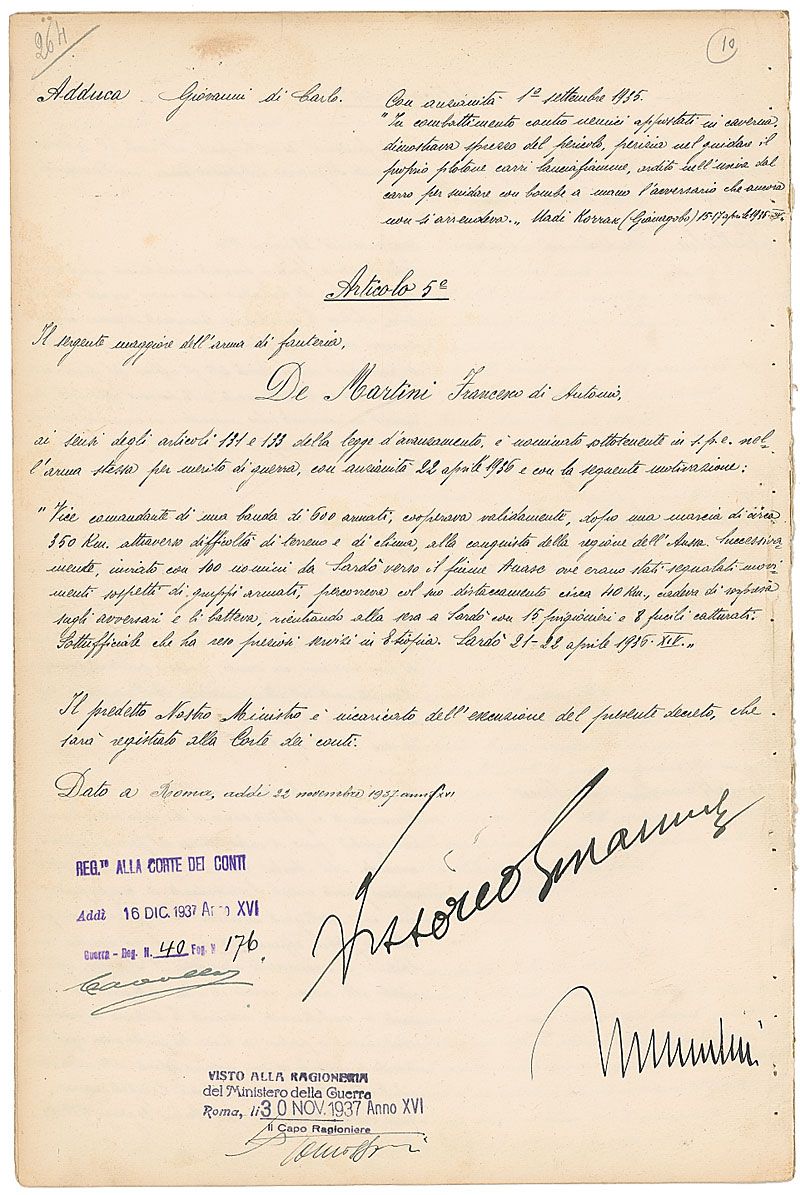 264
10
Adduca Giovanni di Carlo.
Con anzianità 1º settembre 1935.
"In combattimento contro nemici appostati in caverna,
dimostrava sprezzo del pericolo, perizia nel guidare il
proprio plotone carri lanciafiamme, ardito nell'uscire dal
carro per snidare con bombe a mano l'avversario che ancora
non si arrendeva." Uadi Korrak (Gianagobò) 15-17 aprile 1936-XIV.
Articolo 5º
Il sergente maggiore dell'arma di fanteria,
De Martini Francesco di Antonio,
ai sensi degli articoli 131 e 133 della legge d'avanzamento, è nominato sottotenente in s.p.e. nel-
l'arma stessa per merito di guerra, con anzianità 22 aprile 1936 e con la seguente motivazione:
"Vice comandante di una banda di 600 armati, cooperava validamente, dopo una marcia di circa
350 Km. attraverso difficoltà di terreno e di clima, alla conquista della regione dell'Aussa. Successiva-
mente, inviato con 100 uomini da Sardò verso il fiume Auasc ove erano stati segnalati movi-
menti sospetti di gruppi armati, percorreva col suo distaccamento circa 40 Km., cadeva di sorpresa
sugli avversari e li batteva, rientrando alla sera a Sardò con 15 prigionieri e 8 fucili catturati.
Sottufficiale che ha reso preziosi servizi in Etiopia. Sardò 21-22 aprile 1936-XIV."
Il predetto Nostro Ministro è incaricato dell'esecuzione del presente decreto, che
sarà registrato alla Corte dei conti.
Dato a Roma, addì 22 novembre 1937 anno XVI
Vittorio Emanuele
REG.TO ALLA CORTE DEI CONTI
Addì 16 DIC. 1937 Anno XVI
Guerra - Reg. N. 40 Fog. N 176.
Mussolini
VISTO ALLA RAGIONERIA
del Ministero della Guerra
Roma, li 30 NOV. 1937 Anno XVI
Il Capo Ragioniere